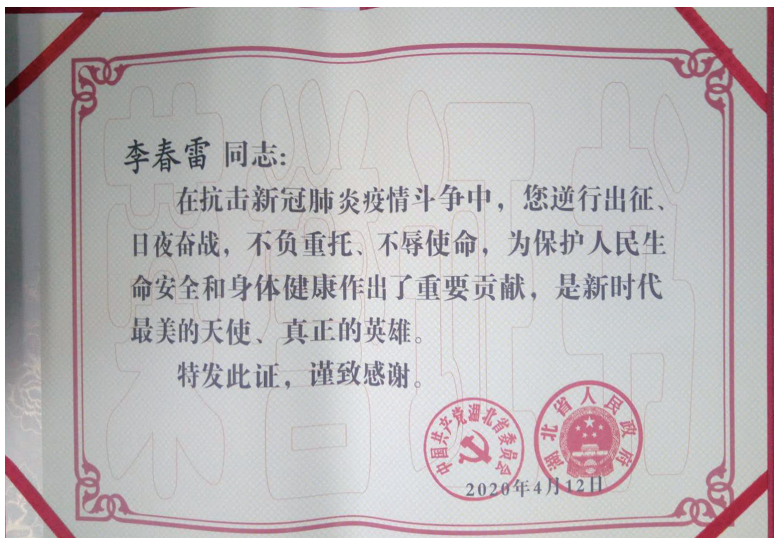 荣誉证书
李春雷 同志：
在抗击新冠肺炎疫情斗争中，您逆行出征、
日夜奋战，不负重托、不辱使命，为保护人民生
命安全和身体健康作出了重要贡献，是新时代
最美的天使、真正的英雄。
特发此证，谨致感谢。
中国共产党湖北省委员会
湖北省人民政府
2020年4月12日